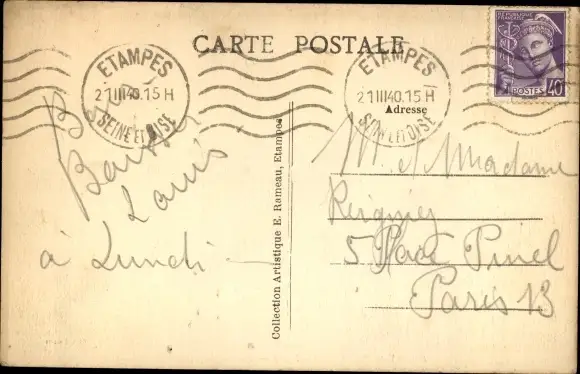 CARTE POSTALE
ETAMPES
21III40.15H
SEINE ET OISE
ETAMPES
21III40.15H
SEINE ET OISE
RÉPUBLIQUE FRANÇAISE
POSTES 40
Adresse
Collection Artistique E. Rameau, Etampes
Louis
à Lundi
M. et Madame
5 Place Pinel
Paris 13